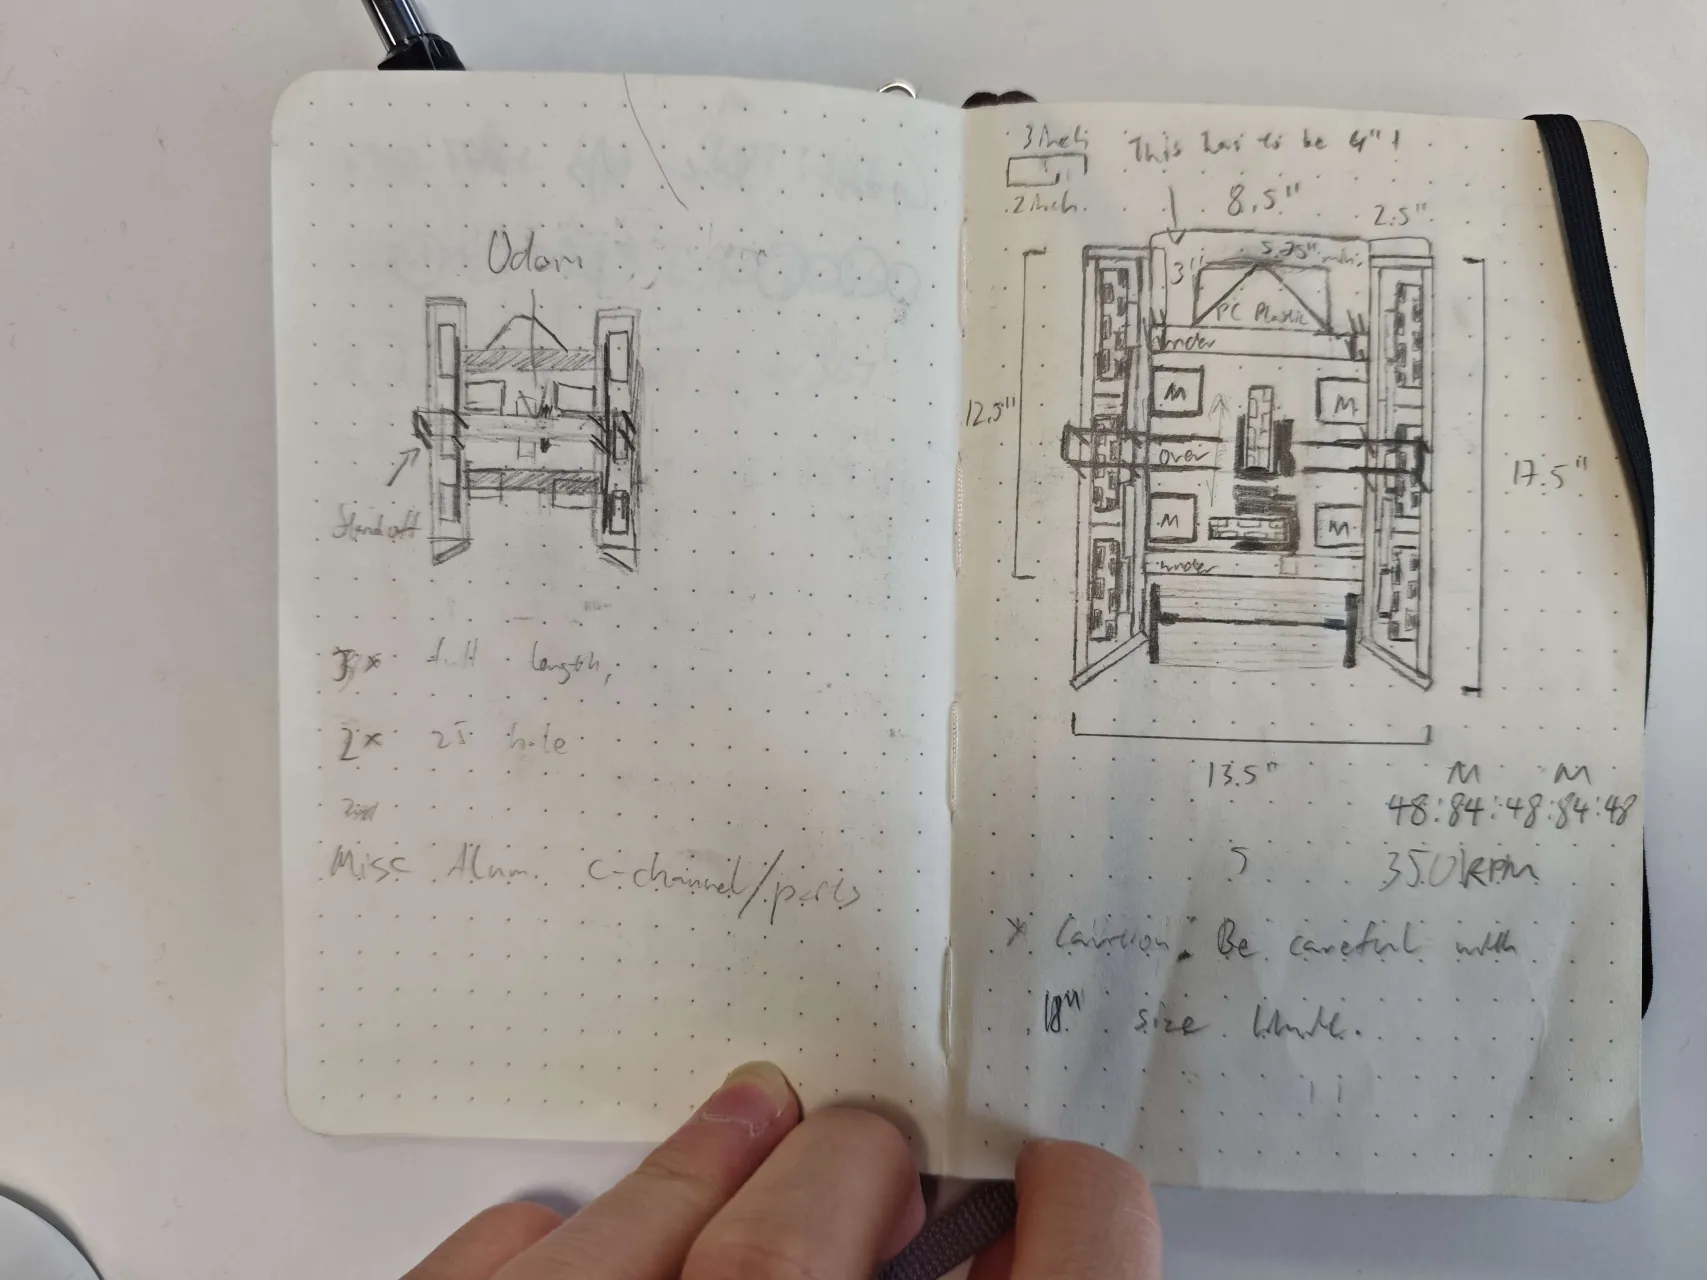 Odom
Standoff
3x full length,
2x 25 hole
Misc Alum. C-channel/parts
3 inch
2 inch
This has to be 4"!
8.5"
2.5"
5.25" min.
3"
PC Plastic
under
M
M
12.5"
over
17.5"
M
M
under
13.5"
M M
48:84:48:84:48
350RPM
* Caution: Be careful with
18" size limit.